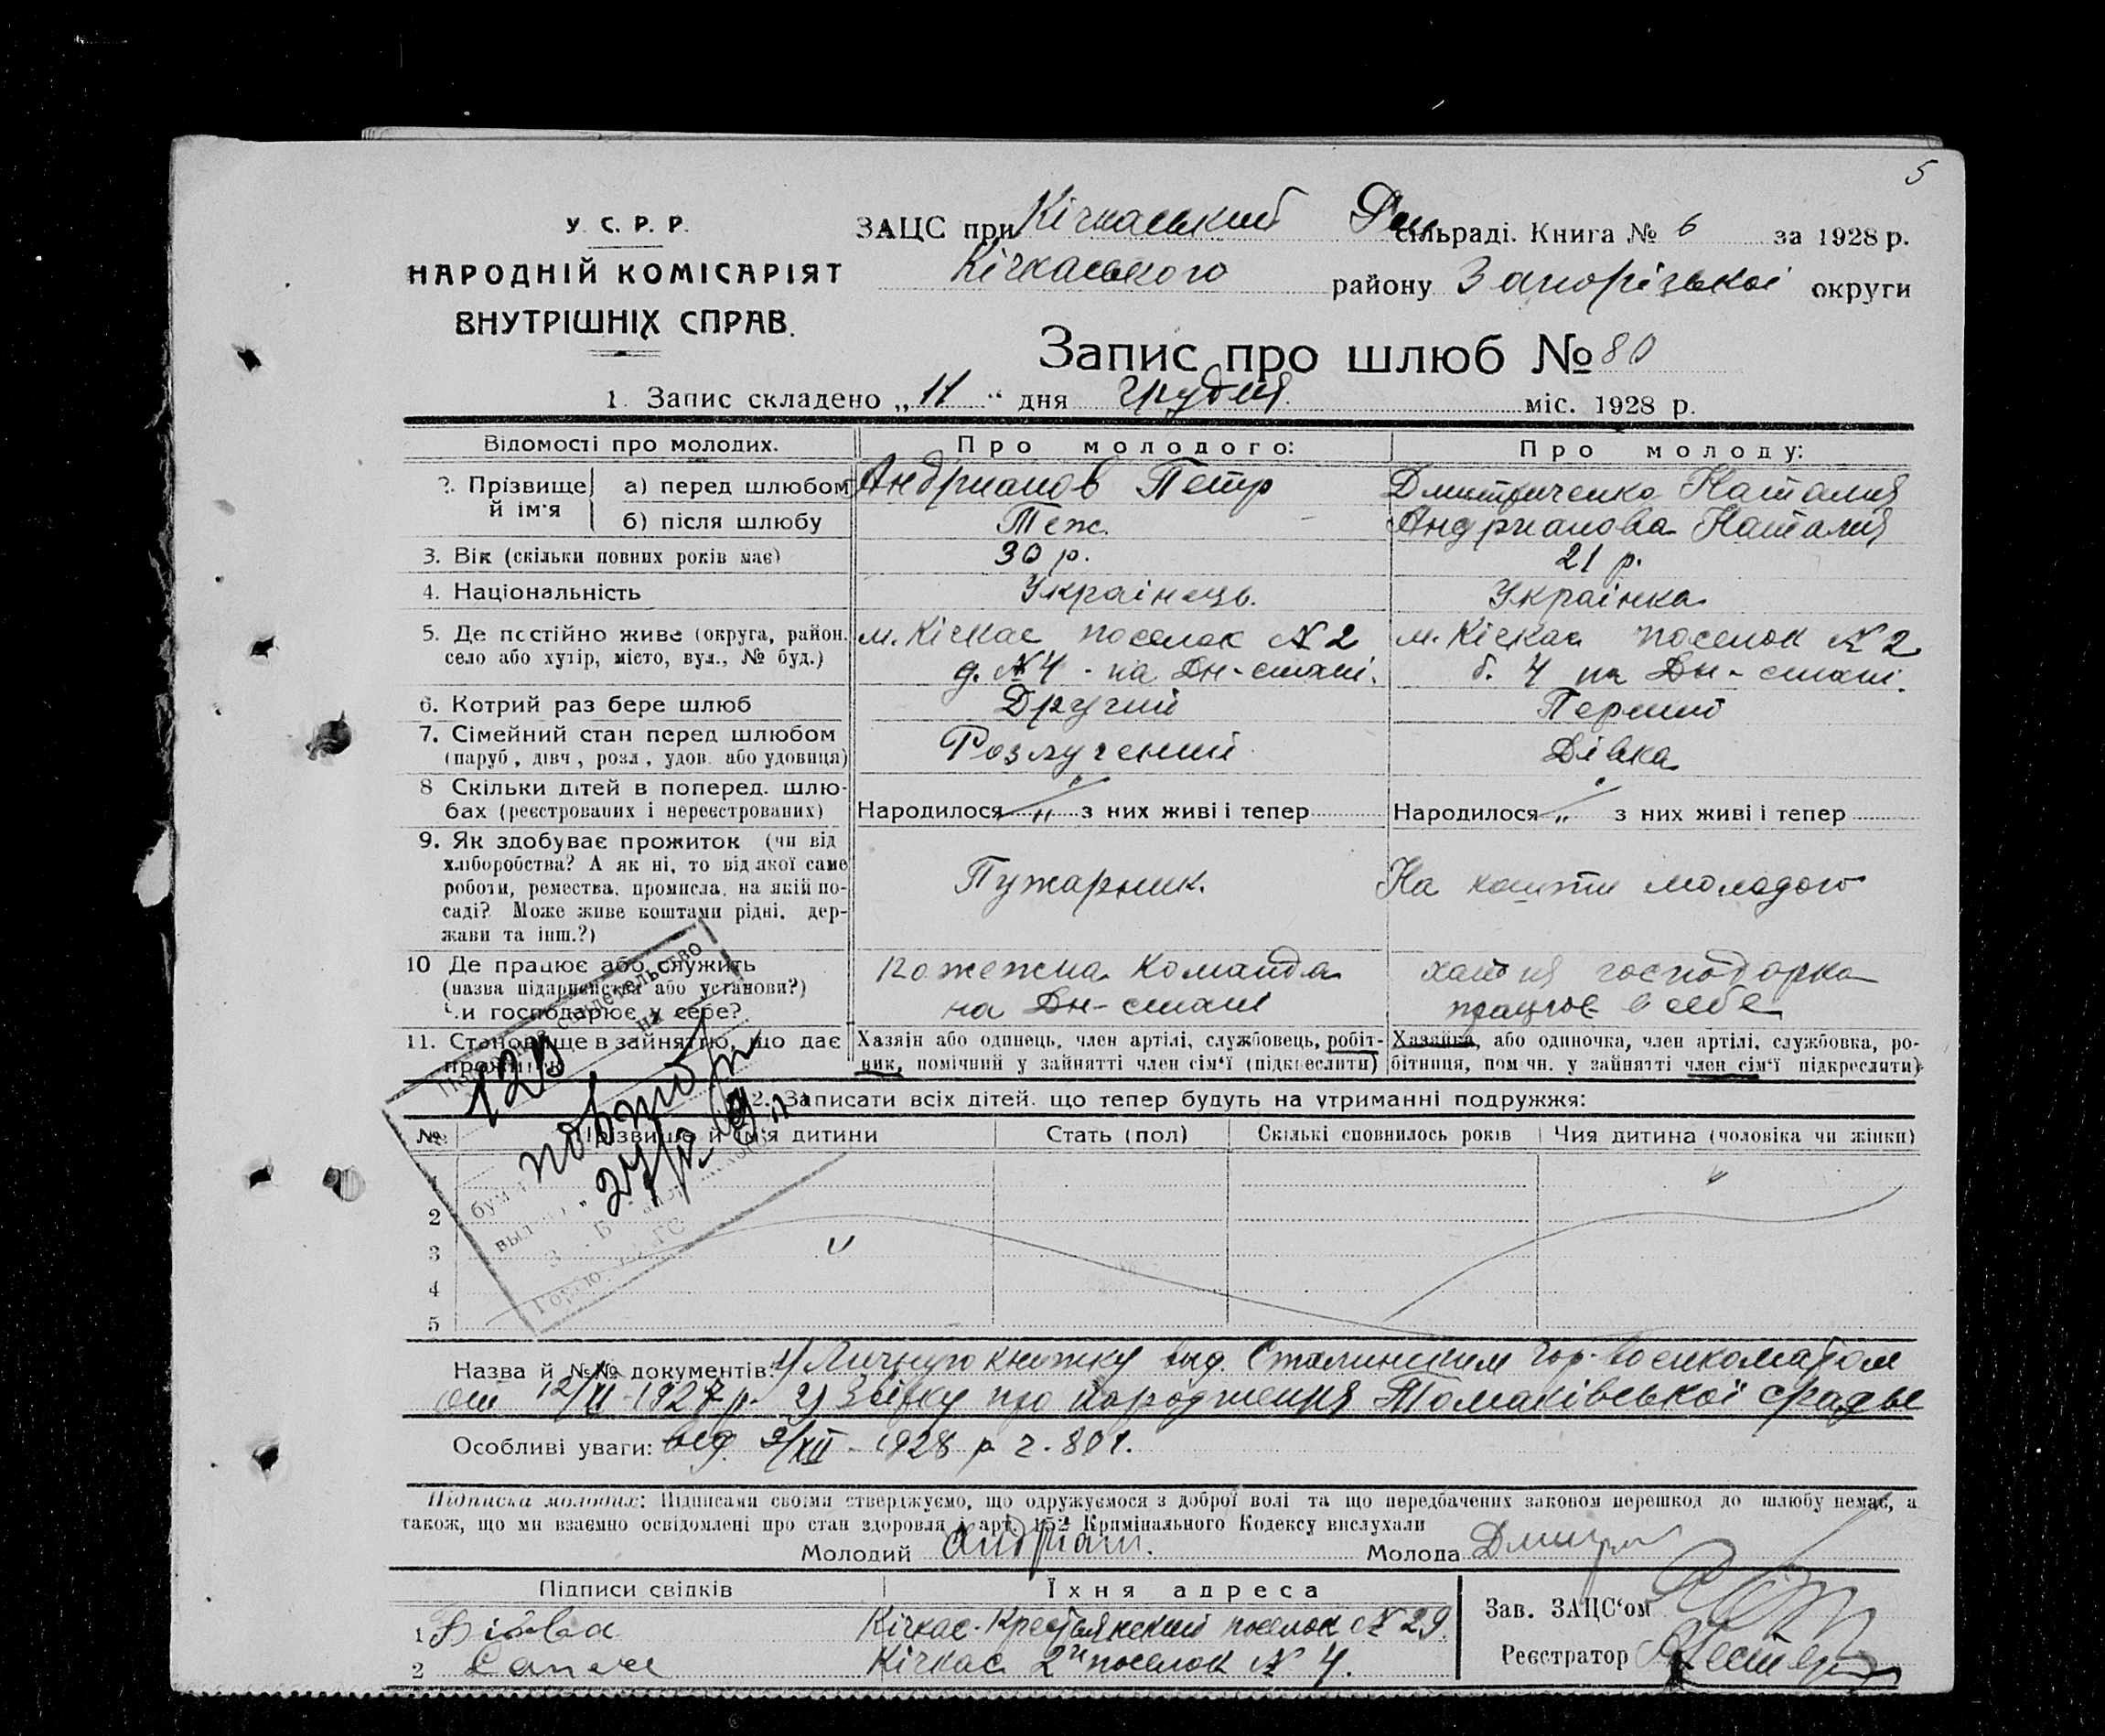 5
У. С. Р. Р.
НАРОДНІЙ КОМІСАРІЯТ
ВНУТРІШНІХ СПРАВ.
ЗАЦС при Кічкаський сільраді. Книга № 6 за 1928 р.
Кічкаського району Запорізької округи
Запис про шлюб № 80
1. Запис складено „11“ дня грудня міс. 1928 р.
Відомості про молодих. Про молодого: Про молоду:
2. Прізвище й ім'я а) перед шлюбом Андрианов Петр Дмитриченко Наталия
б) після шлюбу Теж. Андрианова Наталия
3. Вік (скільки повних років має) 30 р. 21 р.
4. Національність Українець. Українка
5. Де постійно живе (округа, район, м. Кічкас поселок № 2 м. Кічкас поселок № 2
село або хутір, місто, вул., № буд.) д. № 4 - на Дн-стані. б. 4 на Дн-стані.
6. Котрий раз бере шлюб Другий Перший
7. Сімейний стан перед шлюбом Розлучений Дівка
(паруб., дівч., розл., удов. або удовиця)
8 Скільки дітей в поперед. шлю-
бах (реєстрованих і нереєстрованих) Народилося „ з них живі і тепер Народилося „ з них живі і тепер
9. Як здобуває прожиток (чи від
хліборобства? А як ні, то від якої саме
роботи, ремества, промисла, на якій по- Пужарник. На кошти молодого
саді? Може живе коштами рідні, дер-
жави та інш.?)
10 Де працює або служить пожежна команда хатня господарка
(назва підприємства або установи?) на Дн-стані працює в себе
Чи господарює у себе?
11. Становище в зайнятю, що дає Хазяїн або одинець, член артілі, службовець, робіт- Хазяйка, або одиночка, член артілі, службовка, ро-
прожиток ник, помічний у зайнятті член сім'ї (підкреслити) бітниця, помічн. у зайнятті член сім'ї підкреслити)
12. Записати всіх дітей, що тепер будуть на утриманні подружжя:
№ Прізвище й ім'я дитини Стать (пол) Скількі сповнилось років Чия дитина (чоловіка чи жінки)
1
2
3
4
5
свидетельство
на
27/12
Назва й №№ документів: 1) Личную книжку выд. Сталинским Гор. Военкоматом
от 12/VI-1927 р. 2) Звітку про народження Томаківської
Особливі уваги: від. 9/XII - 1928 р ч. 801.
Підписка молодих: Підписами своїми стверджуємо, що одружуємося з доброї волі та що передбачених законом перешкод до шлюбу немає, а
також, що ми взаємно освідомлені про стан здоровля і арт. 152 Кримінального Кодексу вислухали
Молодий Андриан. Молода Дмитр
Підписи свідків Їхня адреса
1 Кічкас. Крестьянский поселок № 29. Зав. ЗАЦС'ом
2 Кічкас 2й поселок № 4. Реєстратор